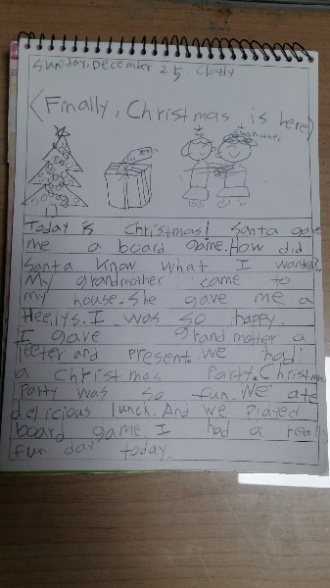 Sunday, December 25. Clowdy
<Finally, Christmas is here>
Today is Christmas! Santa gave
me a board game. How did
Santa know what I wanted
My grandmother came to
my house. She gave me a
Heeliys. I was so happy.
I gave grandmother a
leeter and present. We had
a Christmas Party. Christmas
Party was so fun. We ate
delicious lunch. And we Played
board game. I had a really
fun day today.